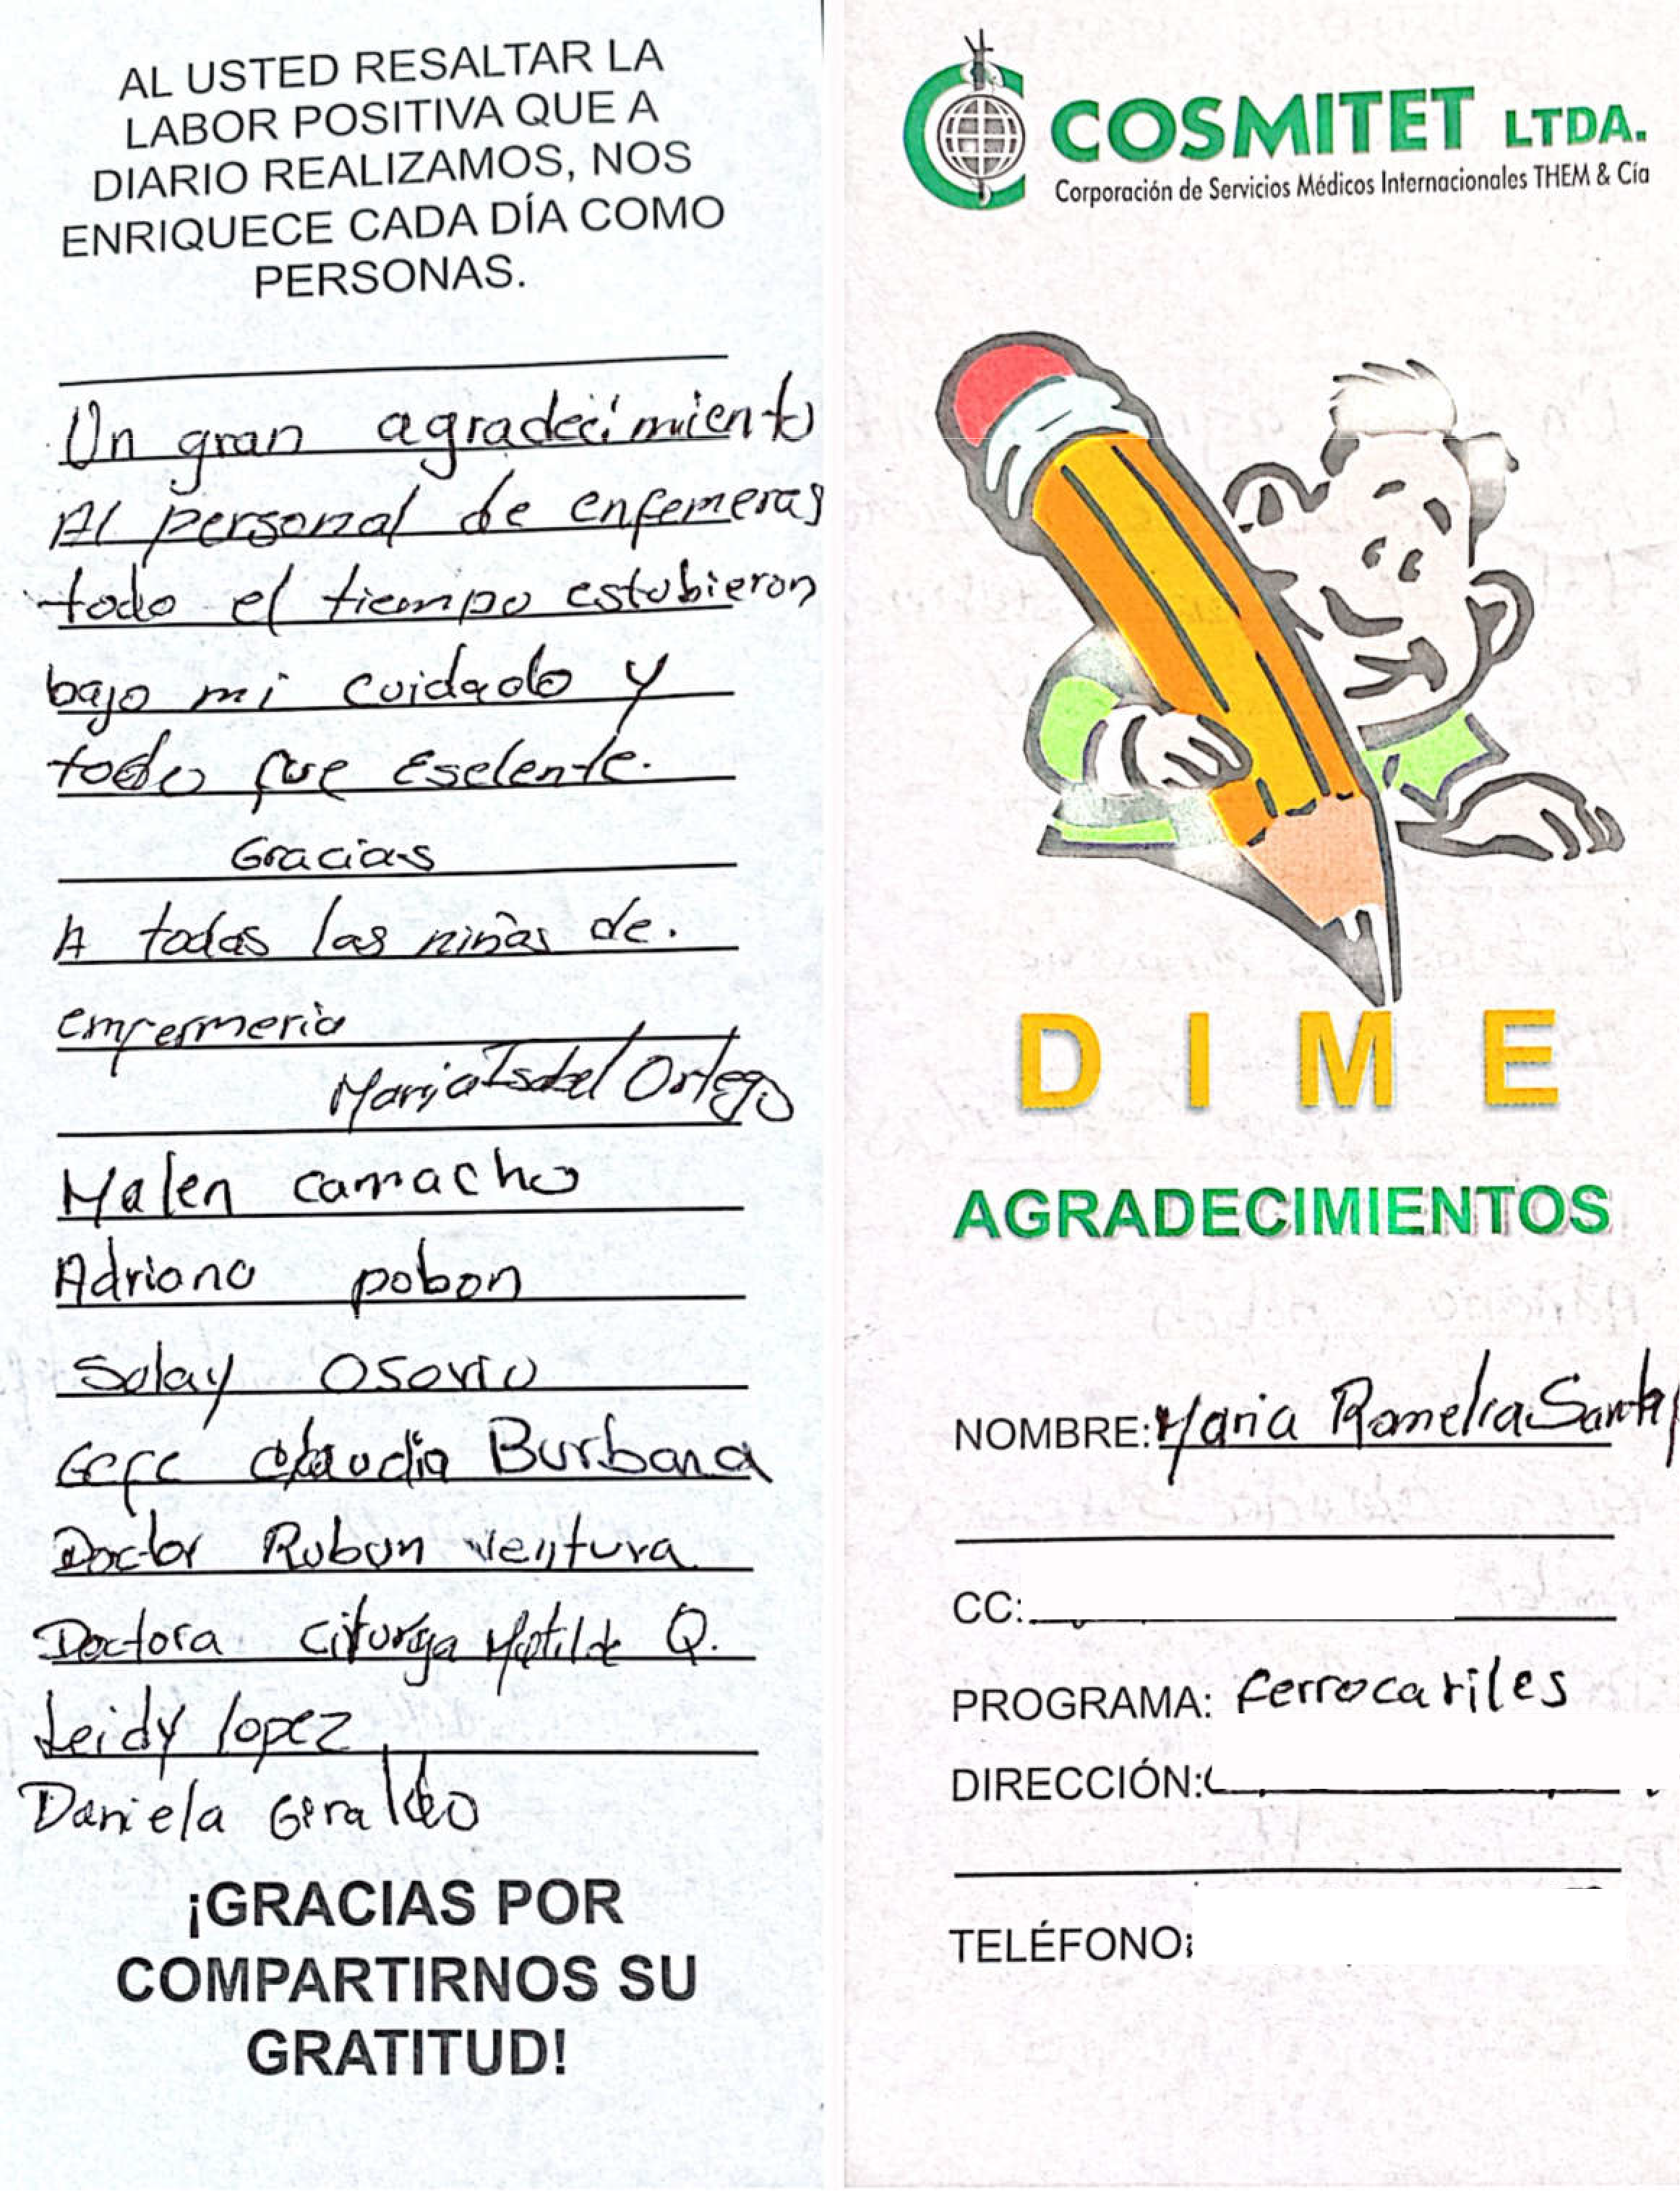 AL USTED RESALTAR LA
LABOR POSITIVA QUE A
DIARIO REALIZAMOS, NOS
ENRIQUECE CADA DÍA COMO
PERSONAS.
Un gran agradecimiento
Al personal de enfemeras
todo el tiempo estubieron
bajo mi cuidado y
todo fue Eselente.
Gracias
A todas las niñas de.
emfermeria
Maria Isabel Ortega
Malen camacho
Adriana pobon
Solay Osorio
Gefe Claudia Burbana
Doctor Rubun Ventura
Doctora Matilde Q.
Leidy lopez
Daniela Giraldo
¡GRACIAS POR
COMPARTIRNOS SU
GRATITUD!
COSMITET LTDA.
Corporación de Servicios Médicos Internacionales THEM & Cía
DIME
AGRADECIMIENTOS
NOMBRE: Maria Romelia
CC:
PROGRAMA: ferrocariles
DIRECCIÓN:
TELÉFONO: